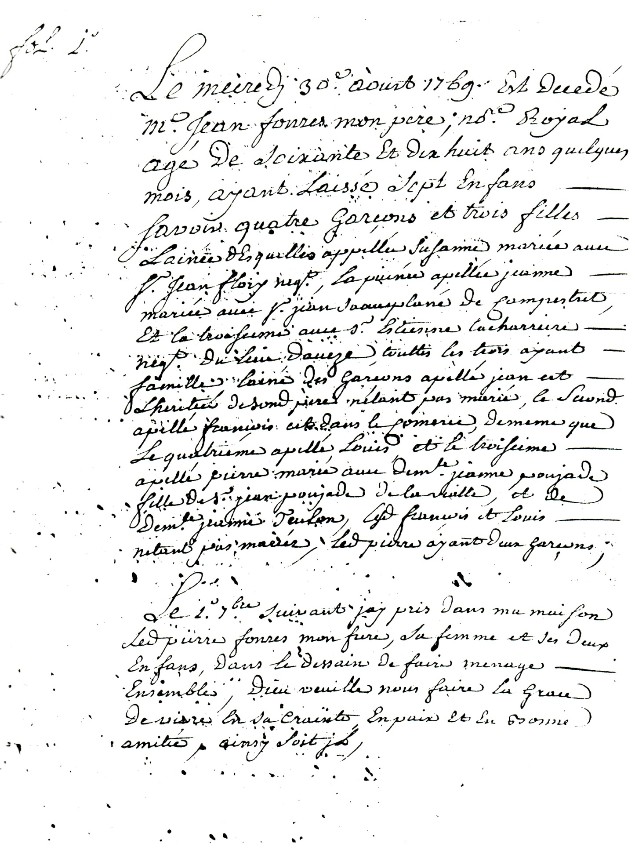 fol. 1.o
Le mercredy 30.e aoust 1769. Est decedé
m.e Jean fonres mon pere, no.re Royal
agé de Soixante Et dix huit ans quelques
mois, ayant Laissé Sept Enfans
Savoir quatre Garçons et trois filles
Lainée desquelles appellée Susanne mariée avec
s.r Jean floix neg.t, La puinée apellée jeanne
mariée avec s.r jean Sauveplane de Compestret,
Et la troisieme avec s.r Estienne Lacharriere
neg.t du Lieu daveze, touttes les trois ayant
famille. Lainé des Garçons apellé jean est
Lheritier de sond pere nétant pas marié, le Second
apellé françois est dans le comerce, dememe que
Le quatrieme apellé Louis et le troisieme
apellé pierre marié avec dem.lle jeanne poujade
fille de s.r jean poujade de la valle, et de
dem.lle jeanne Teulon, Lesd françois et Louis
nétant pas mariés, Led pierre ayant deux Garçons;
Le 1.er 7bre suivant jay pris dans ma maison
Led pierre fonres mon frere, sa femme et ses deux
Enfans, dans le dessain de faire menage
Ensemble, Dieu veuille nous faire la Grace
De vivre En sa Crainte, En paix Et En Bonne
amitié, ainsy soit jl,